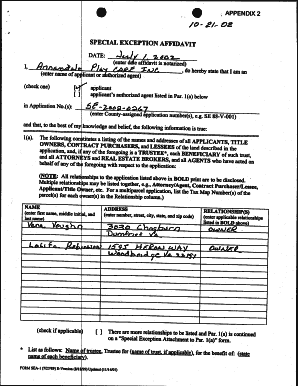 APPENDIX 2
10-21-02
SPECIAL EXCEPTION AFFIDAVIT
DATE: July 1, 2002
(enter date affidavit is notarized)
I, Annandale Play Care Inc., do hereby state that I am an
(enter name of applicant or authorized agent)
(check one) [✓] applicant
[ ] applicant's authorized agent listed in Par. 1(a) below
in Application No.(s): SE-2002-
(enter County-assigned application number(s), e.g. SE 88-V-001)
and that, to the best of my knowledge and belief, the following information is true:
1(a). The following constitutes a listing of the names and addresses of all APPLICANTS, TITLE
OWNERS, CONTRACT PURCHASERS, and LESSEES of the land described in the
application, and, if any of the foregoing is a TRUSTEE*, each BENEFICIARY of such trust,
and all ATTORNEYS and REAL ESTATE BROKERS, and all AGENTS who have acted on
behalf of any of the foregoing with respect to the application:
(NOTE: All relationships to the application listed above in BOLD print are to be disclosed.
Multiple relationships may be listed together, e.g., Attorney/Agent, Contract Purchaser/Lessee,
Applicant/Title Owner, etc. For a multiparcel application, list the Tax Map Number(s) of the
parcel(s) for each owner(s) in the Relationship column.)
NAME ADDRESS RELATIONSHIP(S)
(enter first name, middle initial, and last name) (enter number, street, city, state, and zip code) (enter applicable relationships listed in BOLD above)
Vaughn 3020 OWNER
Dumfries Va.
Robinson 1595 HERON WAY OWNER
Woodbridge Va 22191
(check if applicable) [ ] There are more relationships to be listed and Par. 1(a) is continued
on a "Special Exception Attachment to Par. 1(a)" form.
* List as follows: Name of trustee, Trustee for (name of trust, if applicable), for the benefit of: (state
name of each beneficiary).